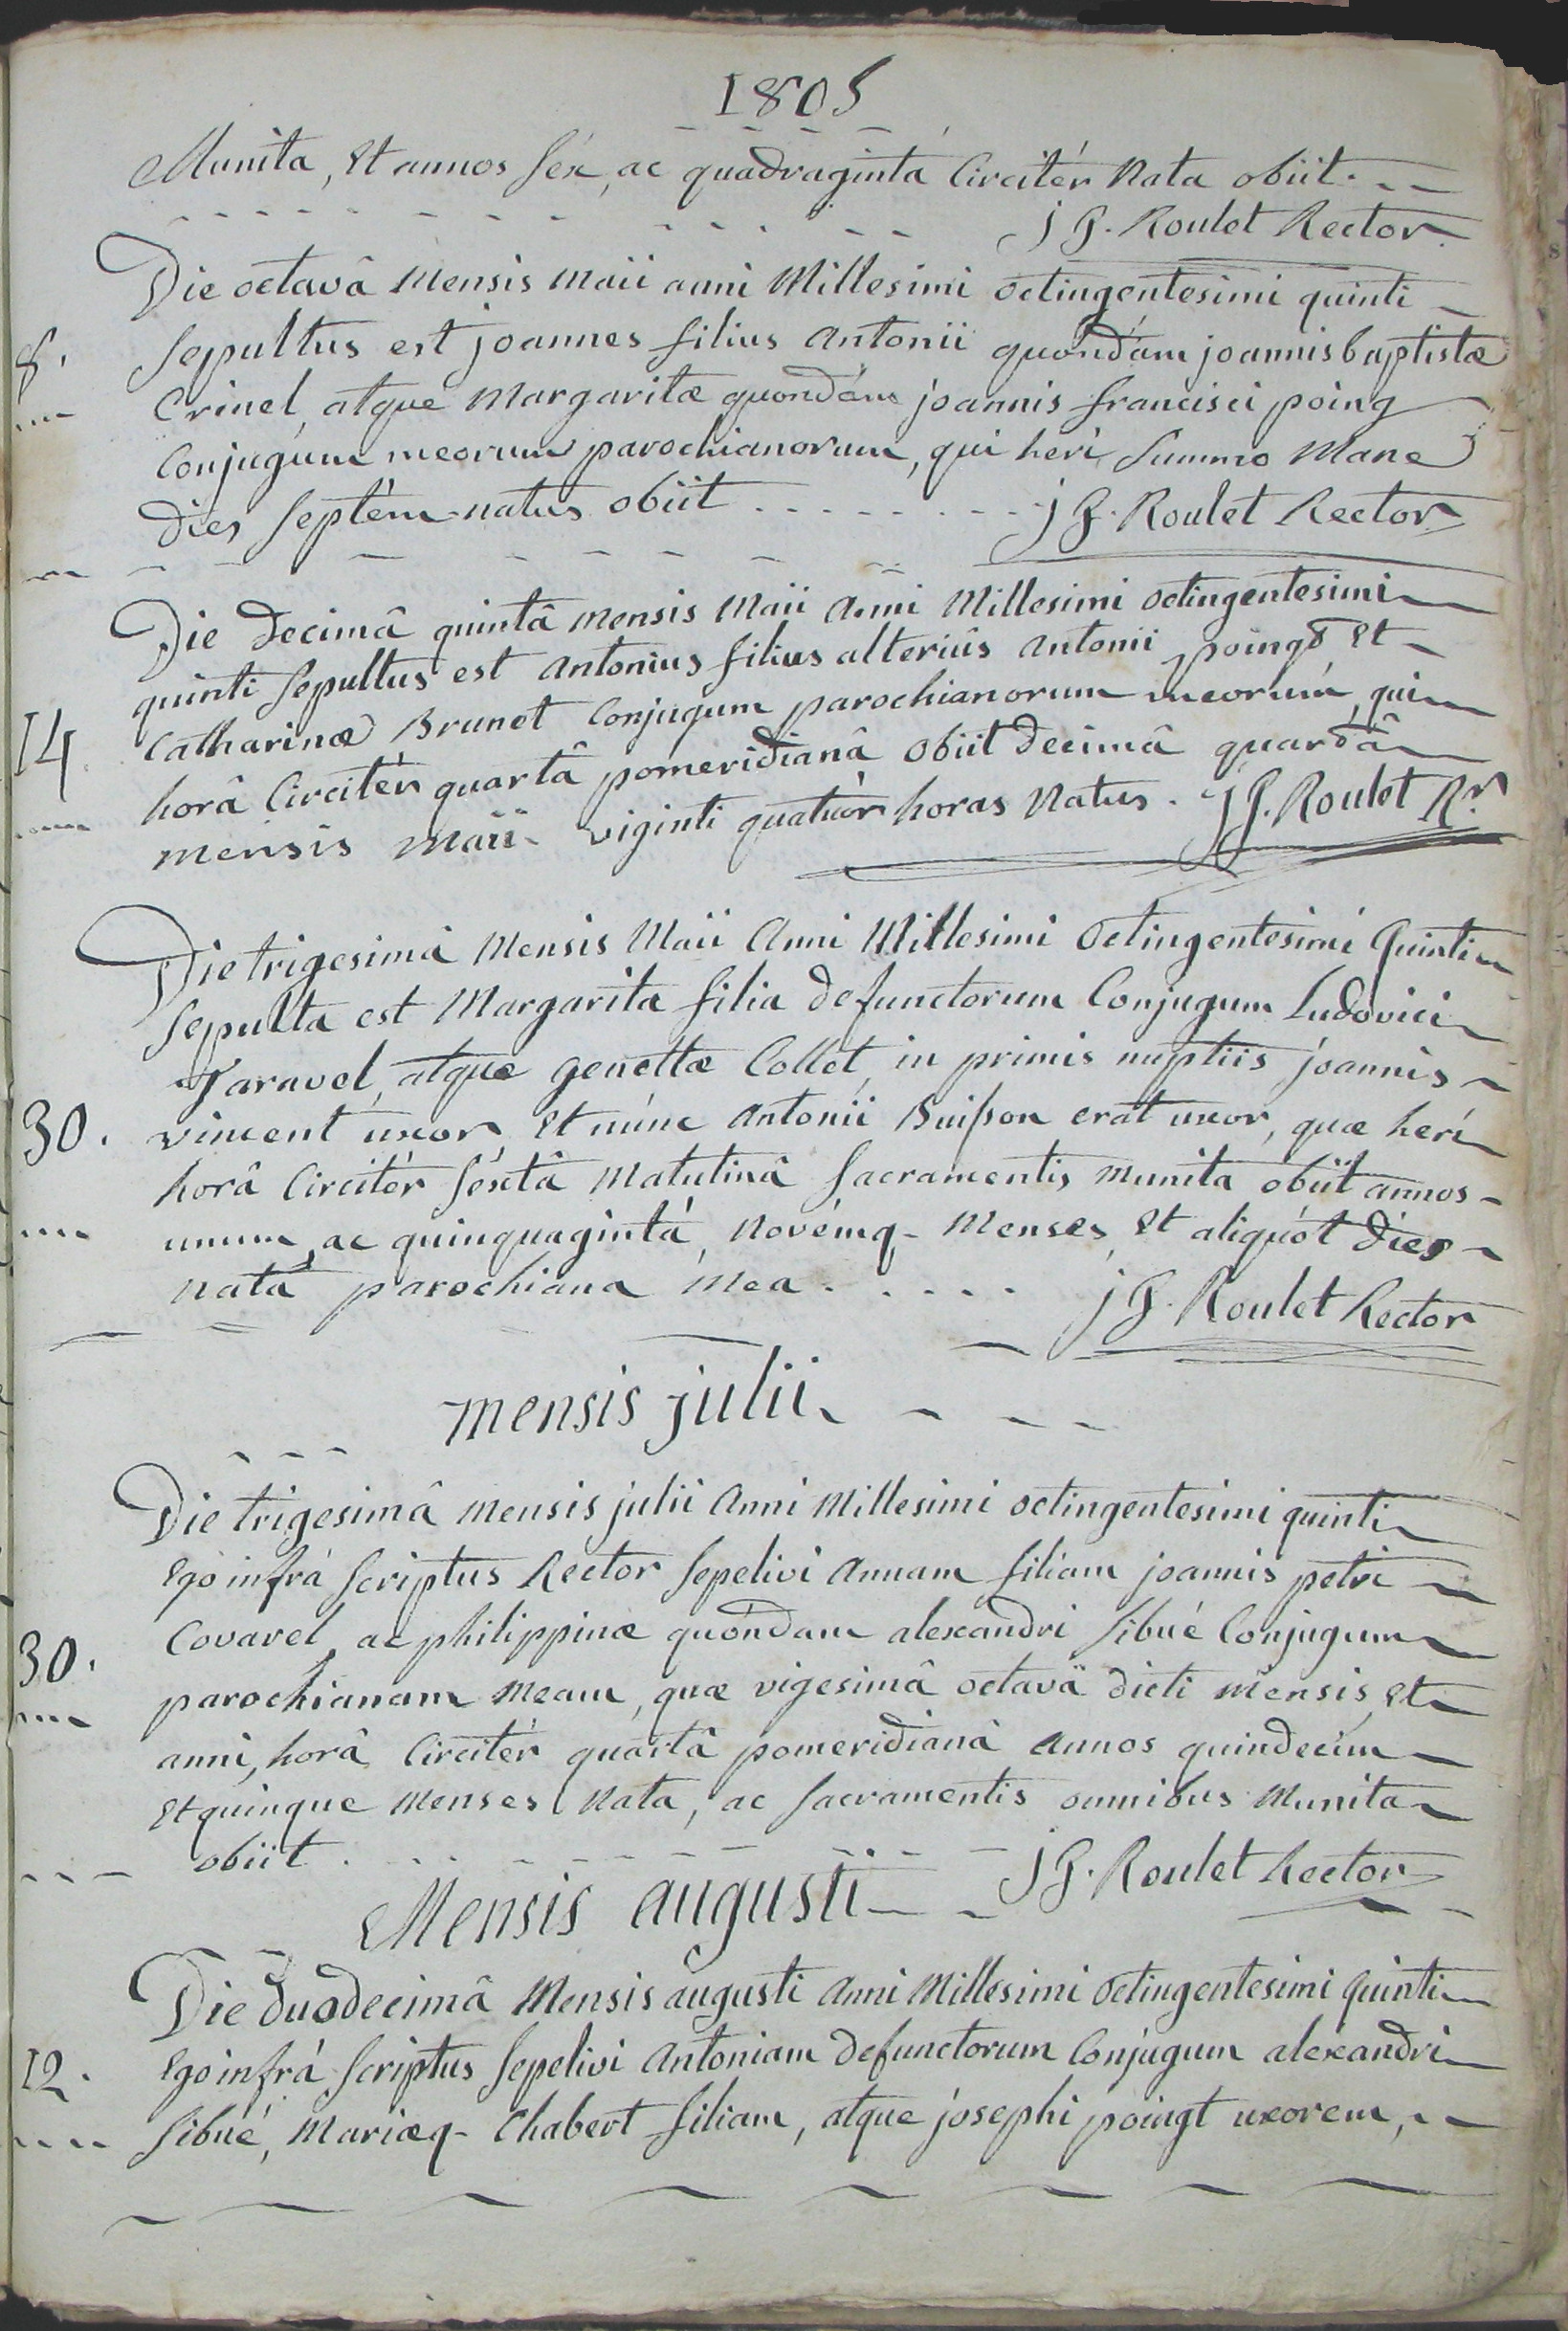 1805
Munita, Et annos séx, ac quadraginta Circitér Nata obiit.
J G. Roulet Rector
Die octavâ Mensis Maii anni Millesimi octingentesimi quinti
8. Sepultus est joannes filius Antonii quondám joannisbaptistæ
Crinel, atque Margaritæ quondám joannis francisci poing
Conjugúm meorum parochianorum, qui herì summo Mane
dies septém natus obiit . . . . . . . . . J G. Roulet Rector
Die decimâ quintâ mensis Maii Anni Millesimi octingentesimi
quinti sepultus est Antonius filius alteriûs Antonii poingt Et
14. Catharinæ Brunet Conjugum parochianorum meorum, qui
horâ Circitér quartâ pomeridianâ obiit decimâ quardâ
mensis Maii viginti quatuòr horas Natus. J G. Roulet Rr.
Die trigesimâ Mensis Maii Anni Millesimi Octingentesimi Quinti
Sepulta est Margarita filia defunctorum Conjugum Ludovici
Taravel, atque genettæ Collet, in primis nuptiis joannis
30. vincent uxor Et núnc Antonii Buisson erat uxor, quæ herì
horâ Circitér séxtâ Matutinâ Sacramentis munita obiit annos
unum, ac quinquagintá, Novémq- Menses, Et aliquót dies
nata parochiana Mea . . . . . J G. Roulet Rector
mensis julii
Die trigesimâ mensis julii Anni Millesimi octingentesimi quinti
Ego infrá scriptus Rector sepelivi Annam filiam joannis petri
Covarel, ac philippinæ quóndam alexandri sibué Conjugum
30. parochianam Meam, quæ vigesimâ octavâ dicti mensis, Et
anni, horâ Circitér quartâ pomeridianâ annos quindecim
Et quinque Menses Nata, ac sacramentis omnibus Munita
obiit . J G. Roulet Rector
Mensis augusti
Die duodecimâ Mensis augusti Anni Millesimi Octingentesimi Quinti
12. Ego infrá scriptus sepelivi Antoniam defunctorum Conjugum alexandri
sibué, Mariæq- Chabert filiam, atque josephi poingt uxorem,